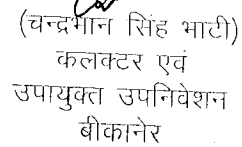 (चन्द्रभान सिंह भाटी)
कलक्टर एवं
उपायुक्त उपनिवेशन
बीकानेर